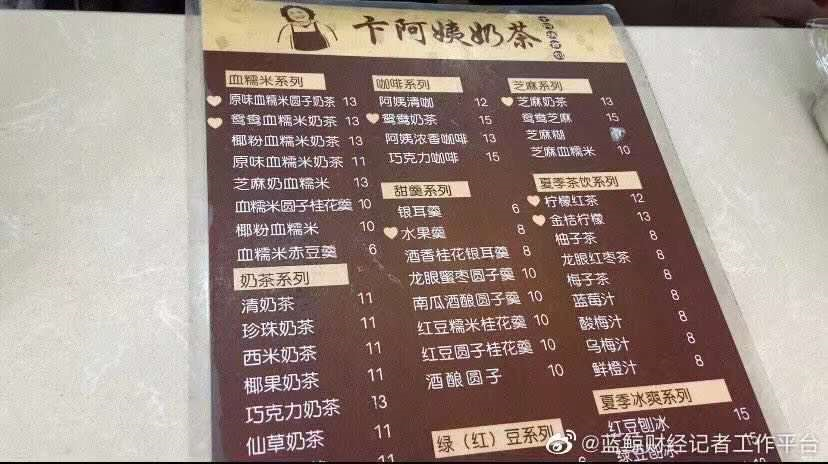 卞阿姨奶茶
血糯米系列
原味血糯米圆子奶茶 13
鸳鸯血糯米奶茶 13
椰粉血糯米奶茶 13
原味血糯米奶茶 11
芝麻奶血糯米 13
血糯米圆子桂花羹 10
椰粉血糯米 10
血糯米赤豆羹 6
奶茶系列
清奶茶 11
珍珠奶茶 11
西米奶茶 11
椰果奶茶 11
巧克力奶茶 13
仙草奶茶 11
咖啡系列
阿姨清咖 12
鸳鸯奶茶 15
阿姨浓香咖啡 13
巧克力咖啡 15
甜羹系列
银耳羹 6
水果羹 8
酒香桂花银耳羹 8
龙眼蜜枣圆子羹 10
南瓜酒酿圆子羹 10
红豆糯米桂花羹 10
红豆圆子桂花羹 10
酒酿圆子 10
绿（红）豆系列
芝麻系列
芝麻奶茶 13
鸳鸯芝麻 15
芝麻糊
芝麻血糯米 10
夏季茶饮系列
柠檬红茶 12
金桔柠檬 13
柚子茶 8
龙眼红枣茶 8
梅子茶 8
蓝莓汁 8
酸梅汁 8
乌梅汁 8
鲜橙汁 8
夏季冰爽系列
红豆刨冰 15
绿豆刨冰 15
@蓝鲸财经记者工作平台